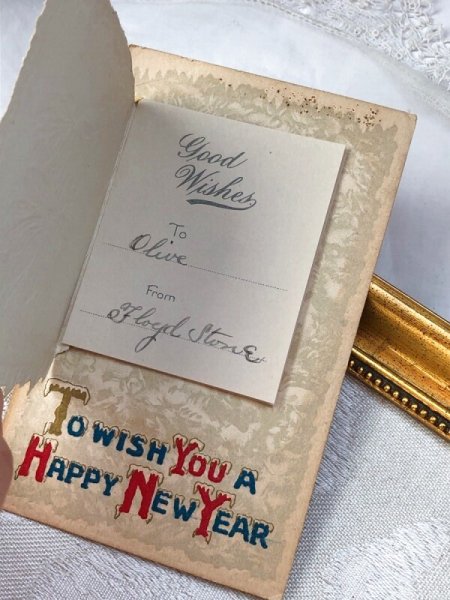 Good
Wishes
To
Olive
From
Floyd Stone
TO WISH YOU A
HAPPY NEW YEAR